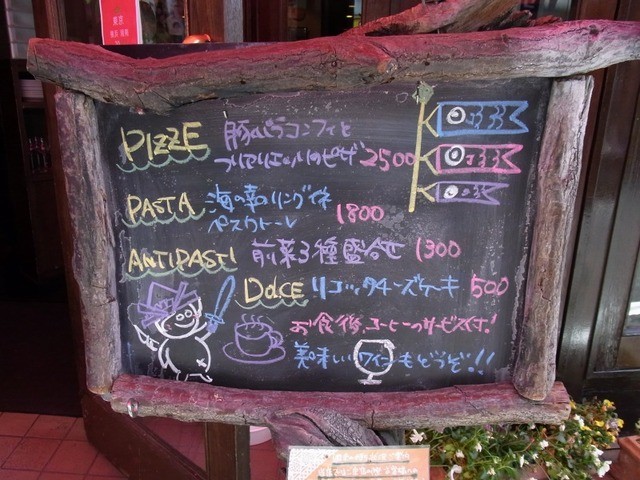 東京
PIZZE 豚バラコンフィと
フリアリエッリのピザ 2500
PASTA 海の幸のリングイネ
ペスカトーレ 1800
ANTIPASTI 前菜3種盛合せ 1300
DOLCE リコッタチーズケーキ 500
お食後、コーヒーのサービスです!
美味しいワインもどうぞ!!